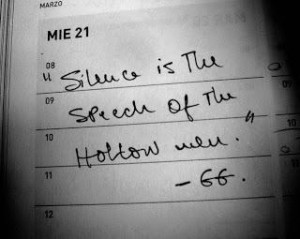 MARZO
MIE 21
08
" Silence is The
09
Speech of The
10
Hollow men. "
11
- GG.
12